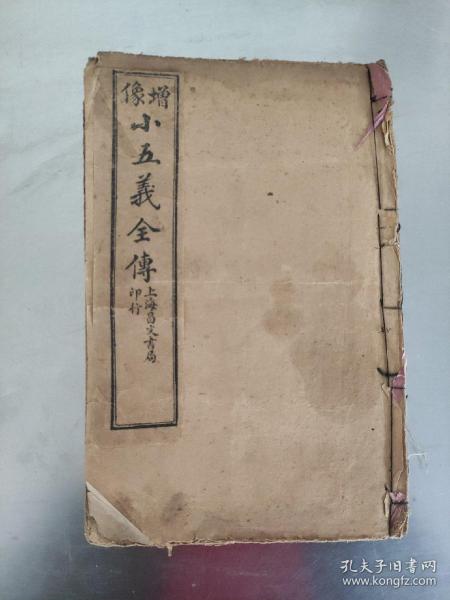 增像
小五義全傳
上海昌文書局
印行
孔夫子旧书网
www.kongfz.com